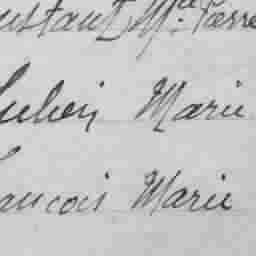 ustant Mie Pierre
Julien Marie
rancois Marie